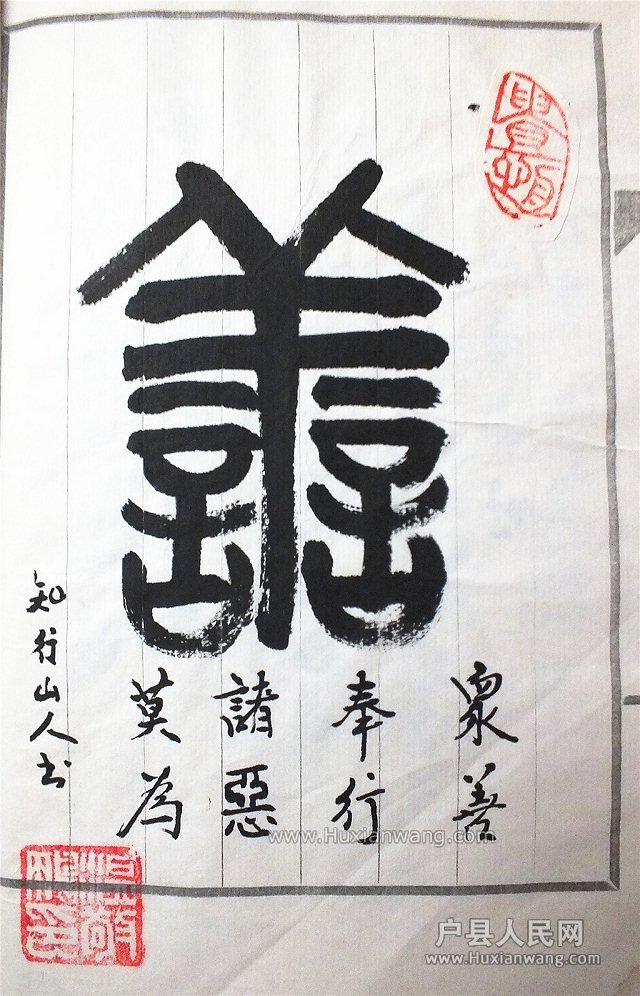 善
眾善
奉行
諸惡
莫為
知行山人书
www.Huxianwang.com
户县人民网
www.Huxianwang.com